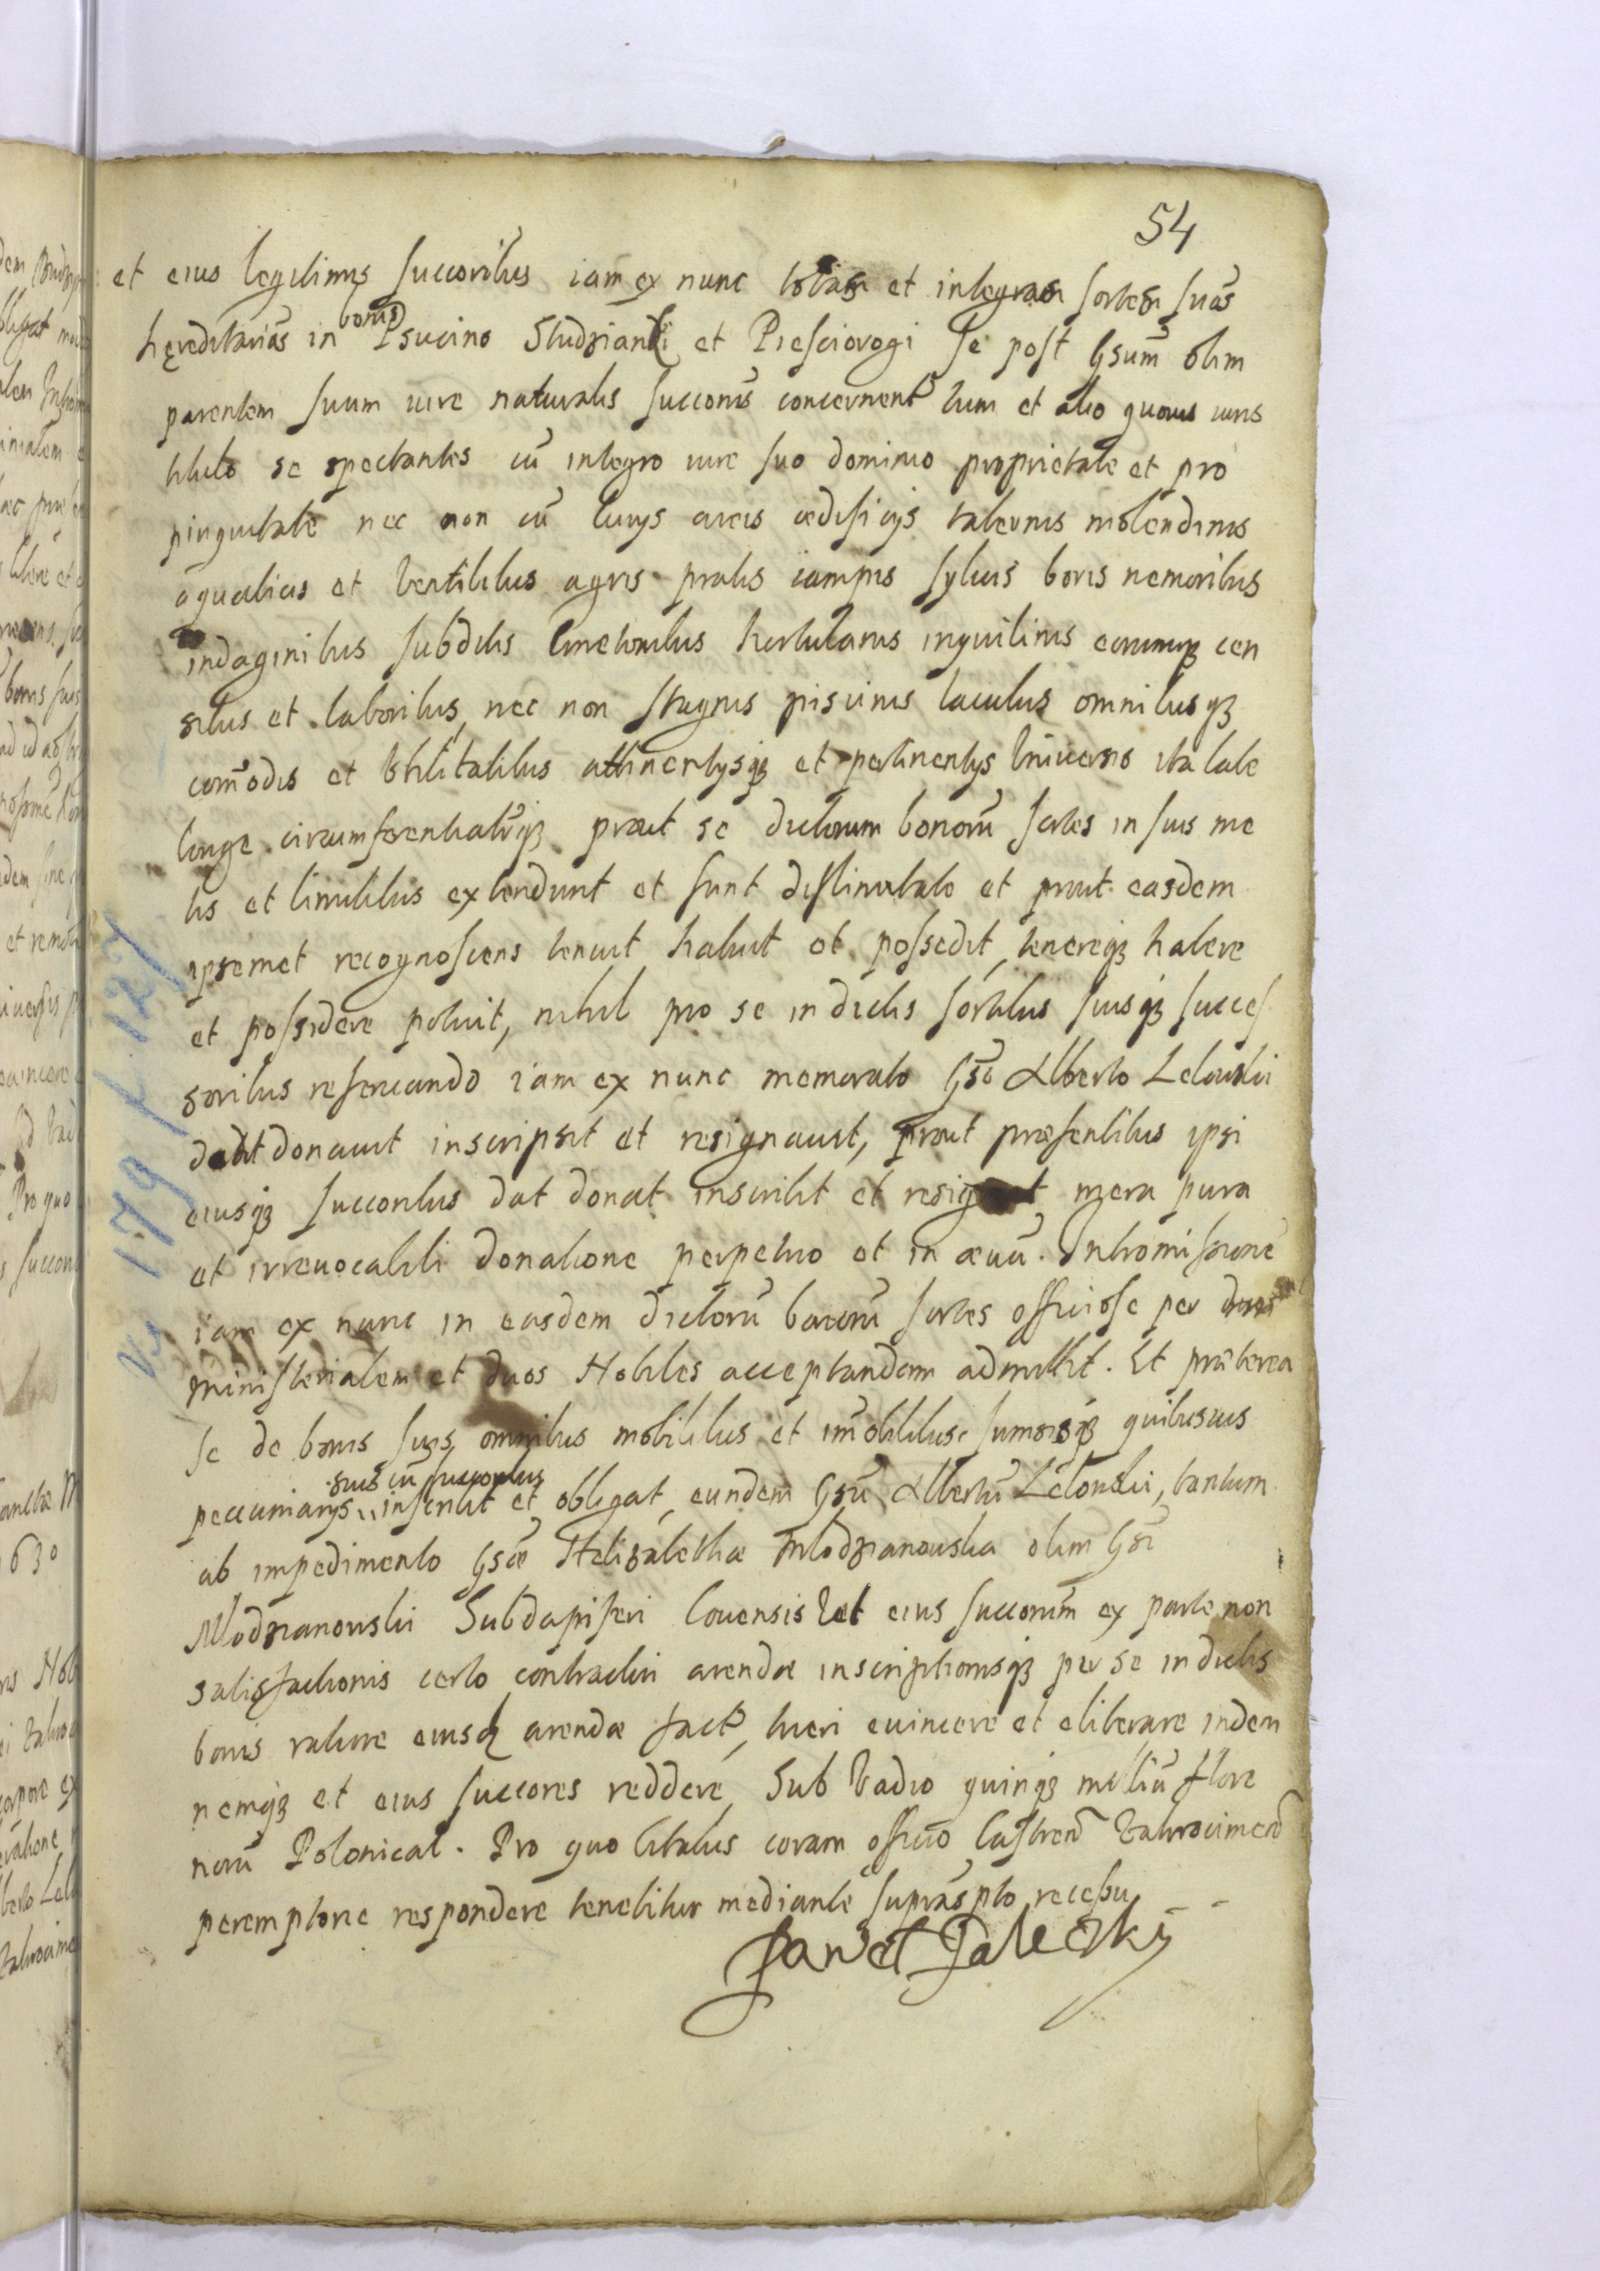 54
et eius legitimis succoribus iam ex nunc totas et integras sortes suas
hęreditarias in bonis Psucino Studzianki et Piesciorogi se post Gsum olim
parentem suum iure naturalis succonis concernent tum et alio quovis iuris
titulo se spectantes cū integro iure suo dominio proprietate et pro
pinquitate nec non cū curys areis ædificys tabernis molendinis
aquaticis et ventilibus agris pratis campis syluis boris nemoribus
indaginibus subditis cmetonibus hortulanis inquilinis eorumqȝ cen
sibus et laboribus, nec non stagnis piscinis lacubus omnibusqȝ
com̄odis et vtilitatibus attinentysqȝ et pertinentys vniuersis ita late
longe circumferentiatīqȝ prout se dictorum bonorū sortes in suis me
tis et limitibus extendunt et sunt distinctato et prout easdem
ipsemet recognoscens tenuit habuit et possedit, tenereqȝ habere
et possidere potuit, nihil pro se in dictis sortibus suisqȝ succes
soribus reseruando iam ex nunc memorato Gso Alberto Letouski
dedit donauit inscripsit et resignauit, prout præsentibus ipsi
eiusqȝ succoribus dat donat inscribit et resignat mera pura
et irreuocabili donatione perpetuo et in æuū. Intromissionē
iam ex nunc in easdem dictorū bonorū sortes officiose per
ministerialem et duos Nobiles acceptandam admittit. Et præterea
se de bonis suis omnibus mobilibus et im̄obilibus, sum̄isqȝ quibusuis
suis cū succoribus
pecuniarys inscribit et obligat, eundem Gsū Albertū Letouski, tantum
ab impedimento Gsæ Helizabethæ Mlodzianouska olim Gsi
Mlodzianouski Subdapiferi Couensis vel eius succorum ex parte non
satisfactionis certo contractui arendæ inscriptionisqȝ per se in dictis
bonis ratione eiusd arendæ fact, tueri euincere et eliberare indem
nemqȝ et eius succores reddere, Sub vadio quinqȝ milliū flore
norū Polonical. Pro quo citatus coram officio Castren
peremptorie respondere tenebitur mediante suprascpto recessu
Paweł Zaleczky
Vs 179 f. 127